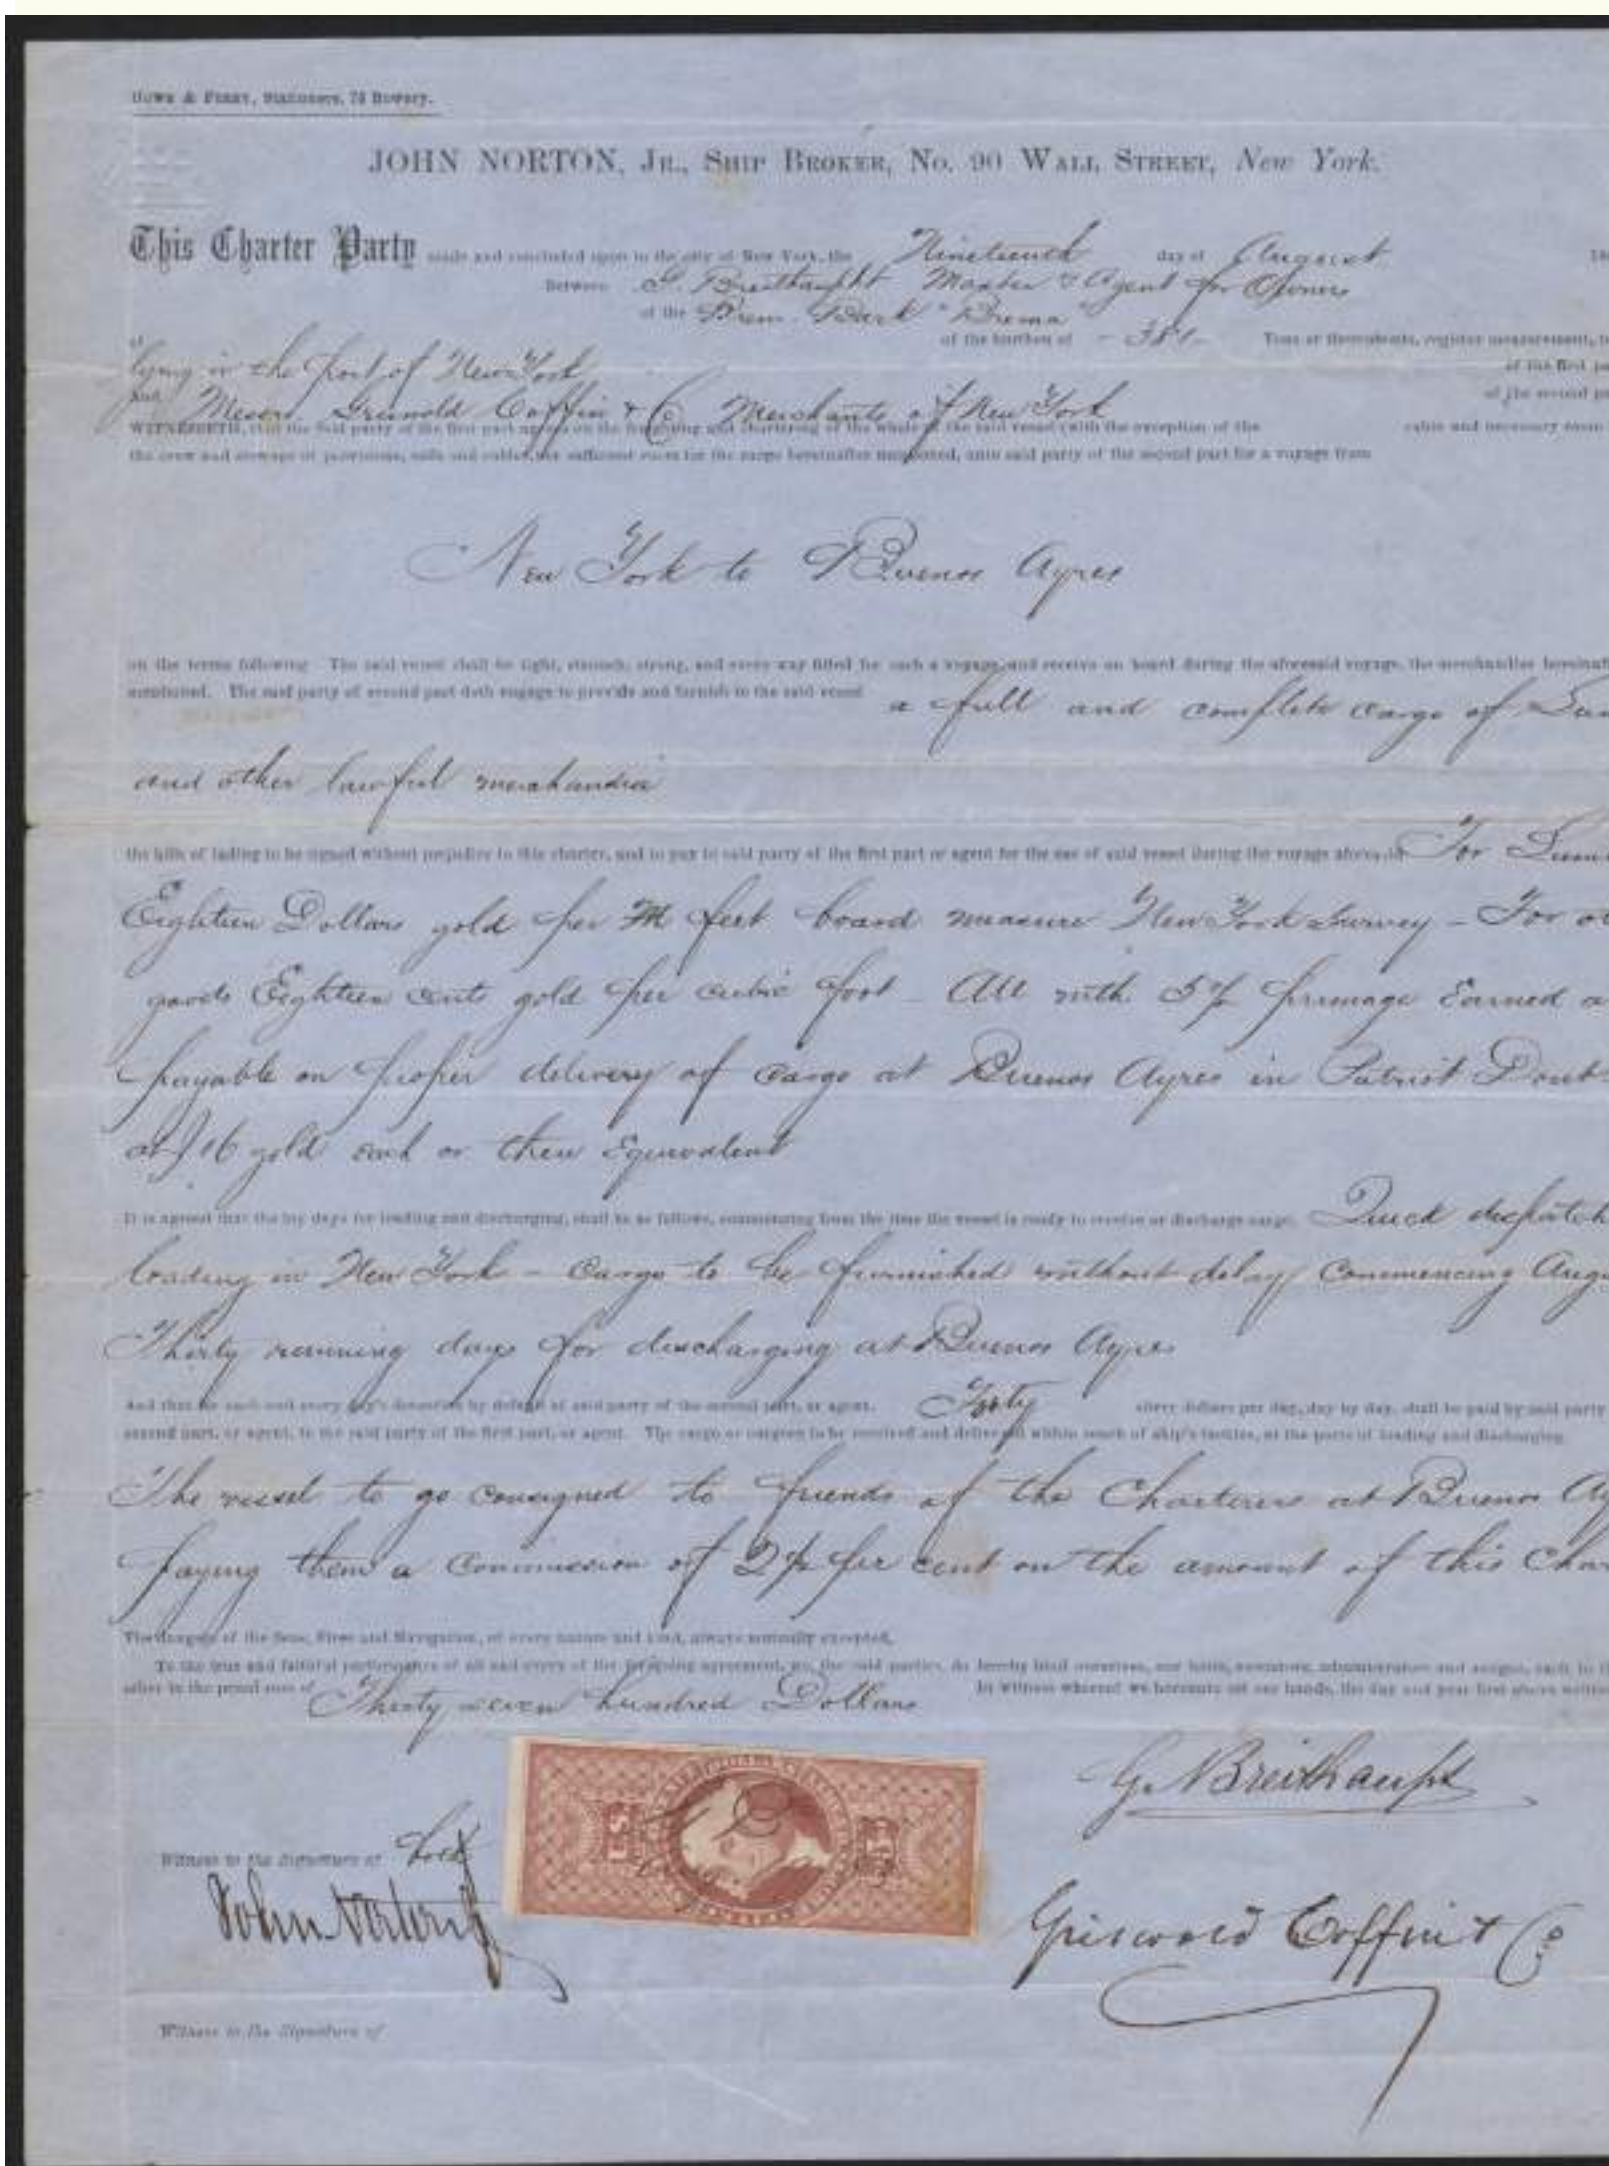 JOHN NORTON, JR., SHIP BROKER, NO. 90 WALL STREET, New York.
This Charter Party made and concluded upon in the city of New York, the Nineteenth day of August
Between G. Breithaupt Master & Agent for Owners
of the Brem. Bark "Brema"
of the burthen of Tons or thereabouts, register measurement,
lying in the port of New York
of the first
and Messrs. Griswold Coffin & Co Merchants of New York
of the second
WITNESSETH, that the said party of the first part agrees on the freighting and chartering of the whole of the said vessel (with the exception of the cabin and necessary room
the crew and stowage of provisions, sails and cables, or sufficient room for the cargo hereinafter mentioned, unto said party of the second part for a voyage from
New York to Buenos Ayres
on the terms following The said vessel shall be tight, staunch, strong, and every way fitted for such a voyage, and receive on board during the aforesaid voyage, the merchandise
mentioned. The said party of second part doth engage to provide and furnish to the said vessel a full and complete cargo of
and other lawful merchandise
the bills of lading to be signed without prejudice to this charter, and to pay to said party of the first part or agent for the use of said vessel during the voyage aforesaid For
Eighteen Dollars gold per M feet board measure New York Survey - For
goods Eighteen cents gold per cubic foot - All with 5% primage Earned
payable on proper delivery of cargo at Buenos Ayres in Patriot
at $16 gold each or their Equivalent
It is agreed that the lay days for loading and discharging, shall be as follows, commencing from the time the vessel is ready to receive or discharge cargo. Quick dispatch
loading in New York - Cargo to be furnished without delay Commencing
Thirty running days for discharging at Buenos Ayres
And that for each and every day's detention by default of said party of the second part, or agent, Forty silver dollars per day, day by day, shall be paid by said party
second part, or agent, to the said party of the first part, or agent. The cargo or cargoes to be received and delivered within reach of ship's tackles, at the ports of loading and discharging.
The vessel to go consigned to friends of the Charterers at Buenos
paying them a Commission of 2½ per cent on the amount of this
The dangers of the Seas, Fires and Navigation, of every nature and kind, always mutually excepted.
To the true and faithful performance of all and every of the foregoing agreement, we, the said parties, do hereby bind ourselves, our heirs, executors, administrators and assigns, each to
other in the penal sum of Thirty seven hundred Dollars In witness whereof we hereunto set our hands, the day and year first above
G. Breithaupt
Witness to the Signature of both
John Norton Jr
Griswold Coffin & Co
Witness to the Signature of